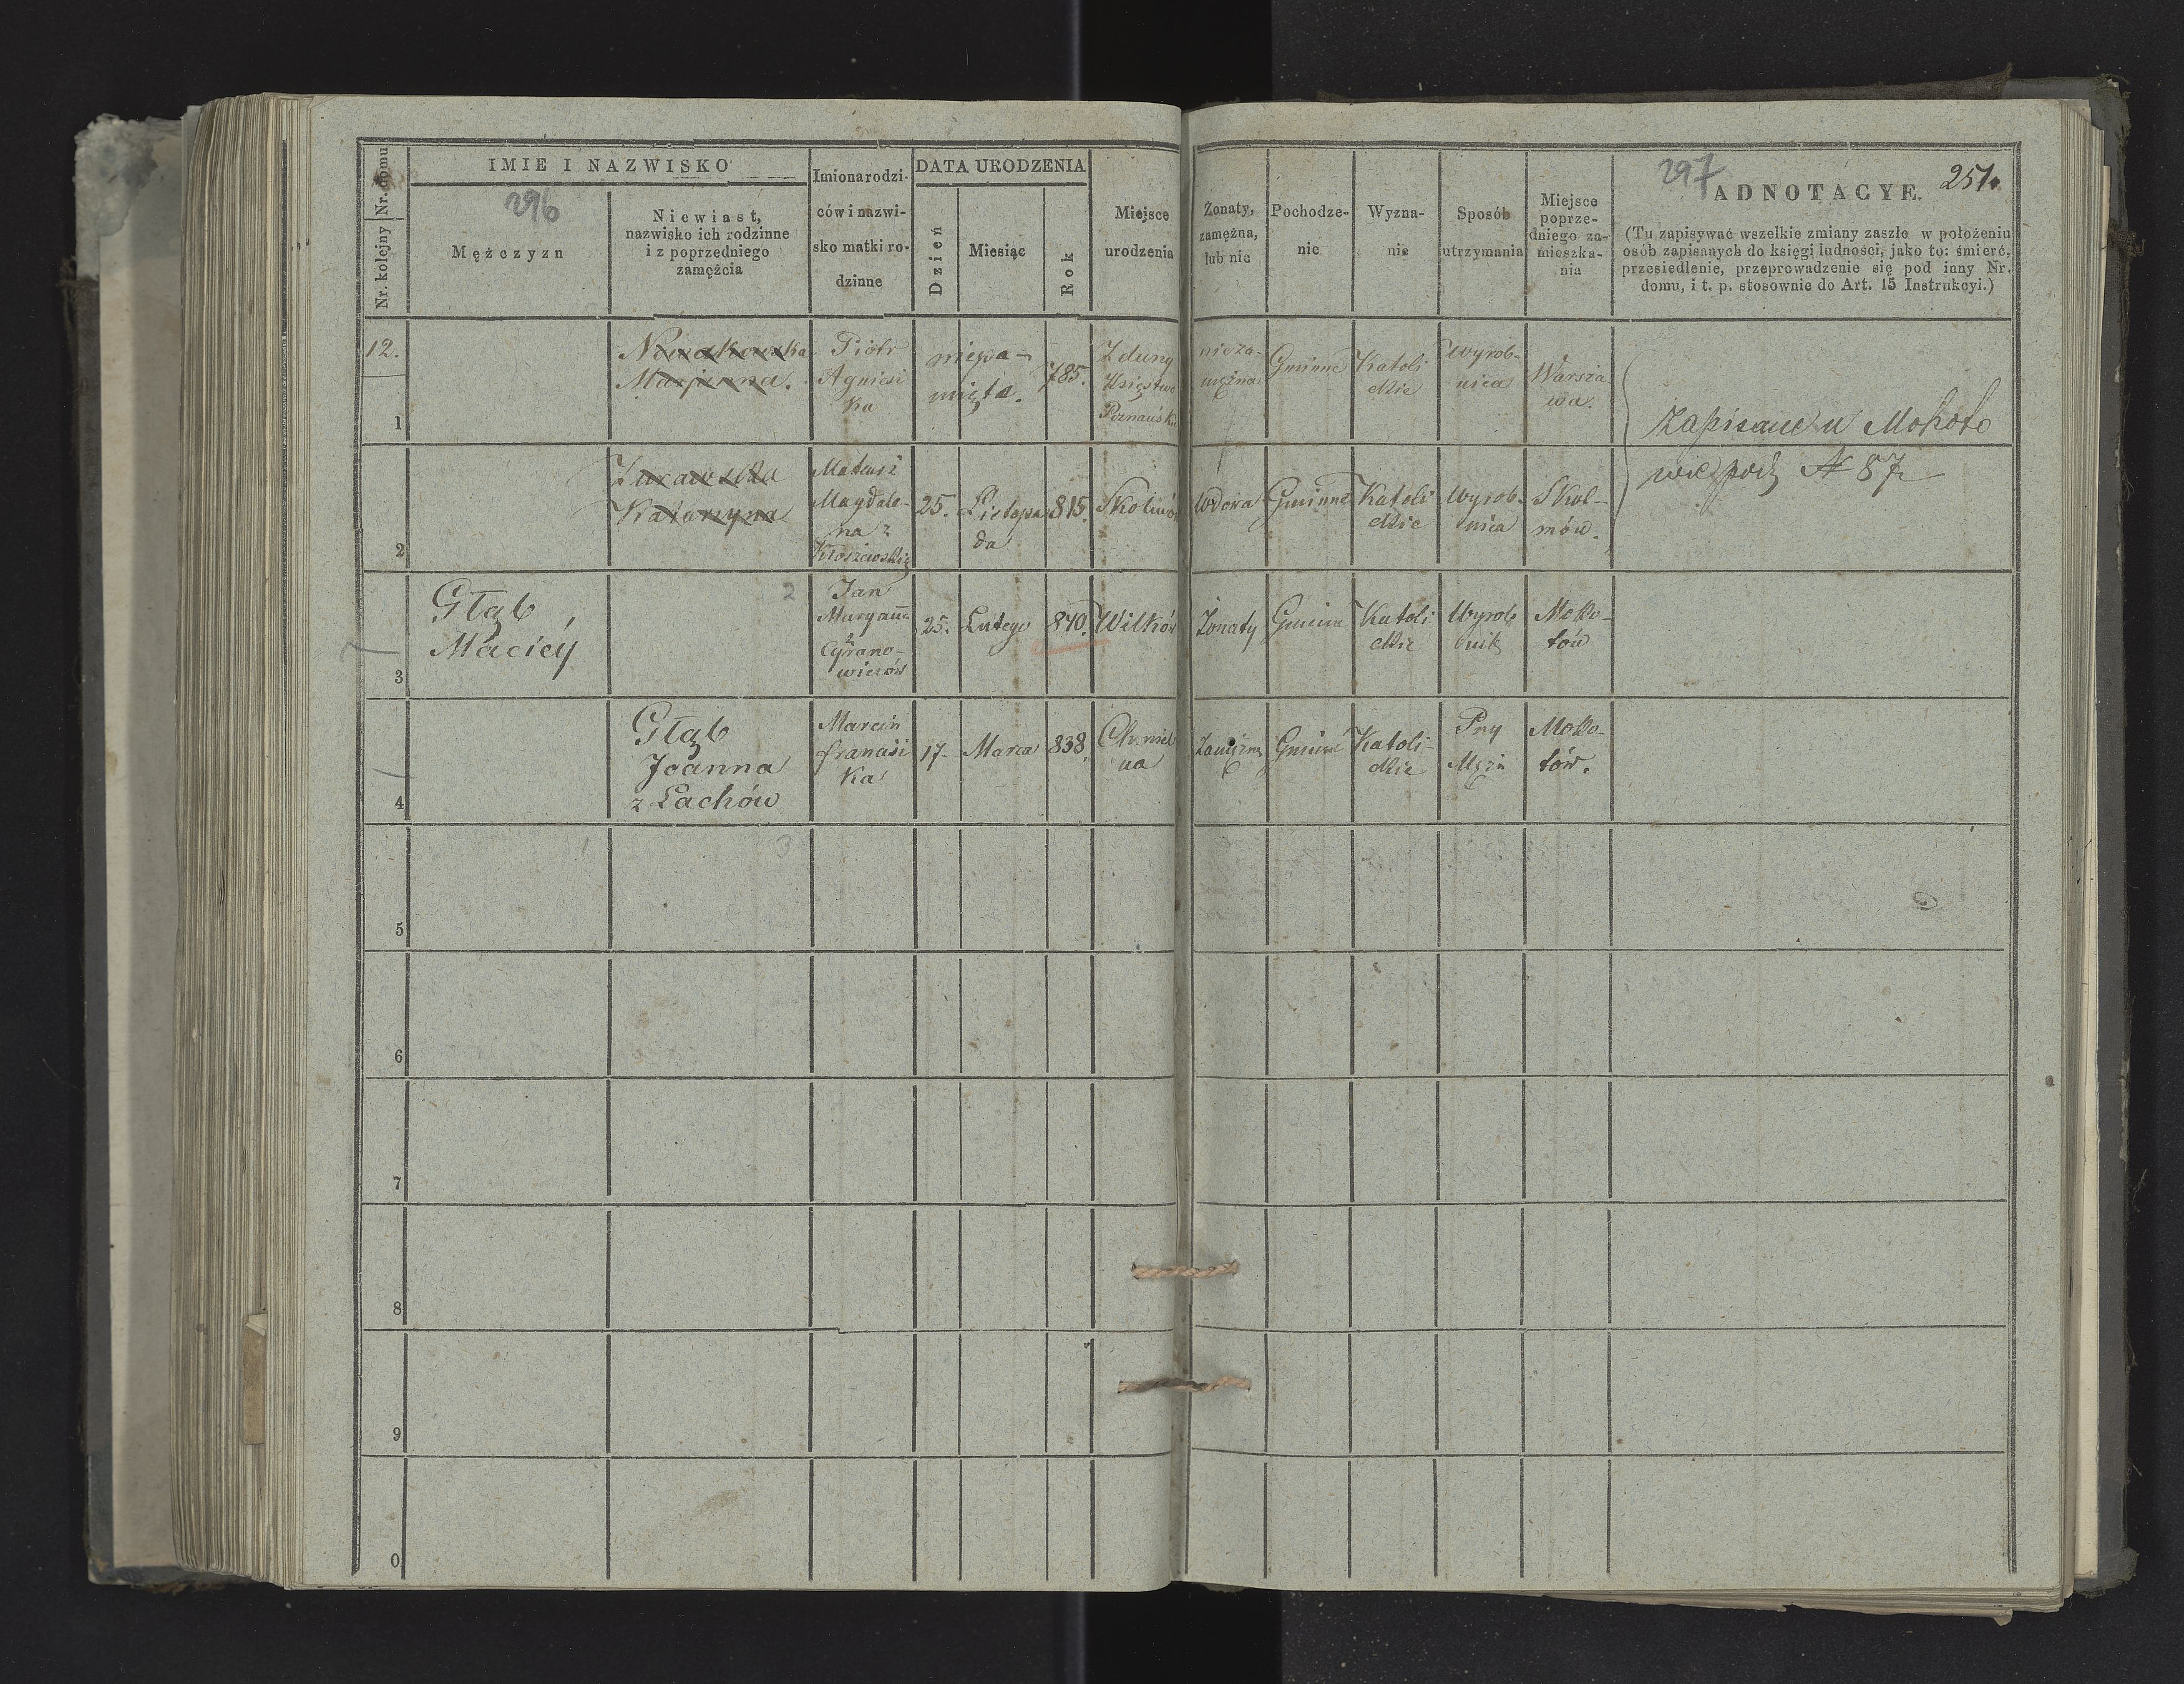 Nr. domu
Nr. kolejny
IMIE I NAZWISKO
296
Mężczyzn
Niewiast,
nazwisko ich rodzinne
i z poprzedniego
zamęźcia
Imiona rodzi-
ców i nazwi-
sko matki ro-
dzinne
DATA URODZENIA
Dzień
Miesiąc
Rok
Miejsce
urodzenia
Żonaty,
zamężna,
lub nie
Pochodze-
nie
Wyzna-
nie
Sposób
utrzymania
Miejsce
poprze-
dniego za-
mieszka-
nia
297
251.
ADNOTACYE.
(Tu zapisywać wszelkie zmiany zaszłe w położeniu
osób zapisanych do księgi ludności, jako to: śmierć,
przesiedlenie, przeprowadzenie się pod inny Nr.
domu, i t. p. stosownie do Art. 15 Instrukcyi.)
12.
1
Nowakowska
Marjanna.
Piotr
Agniesi
ka
niepa-
mięta.
785.
Zduny
Księstwo
Poznańsk
nieza-
mężna
Gminne
Katoli
ckie
Wyrob-
nica
Warsza
wa.
Zapisane w Mokoto
wie pod N 87
2
Żurawska
Katarzyna
Mateusz
Magdale-
na z
25.
Listopa
da
815.
Skolimów
Wdowa
Gminne
Katoli
ckie
Wyrob-
nica
Skol-
mów.
3
Głąb
Maciéy
2
Jan
Maryanna
z
Cyrano-
wiczów
25.
Lutego
840.
Wilków
Żonaty
Gminne
Katoli
ckie
Wyrob
nik
Moko-
tów
4
Głąb
Joanna
z Lachów
Marcin
Francisi
ka
17.
Marca
838.
Chmiel
na
Zamężna
Gminne
Katoli-
ckie
Przy
Mężu
Moko-
tów.
3
5
6
7
8
9
0